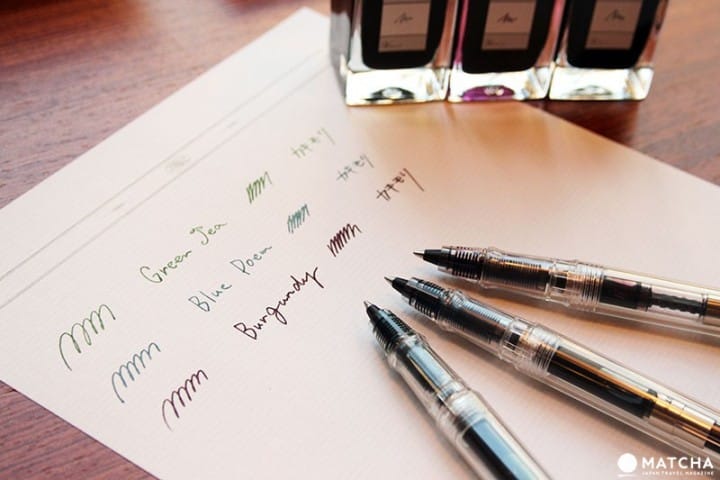 Green Tea カキモリ
Blue Poem カキモリ
Burgundy カキモリ
MATCHA
JAPAN TRAVEL MAGAZINE